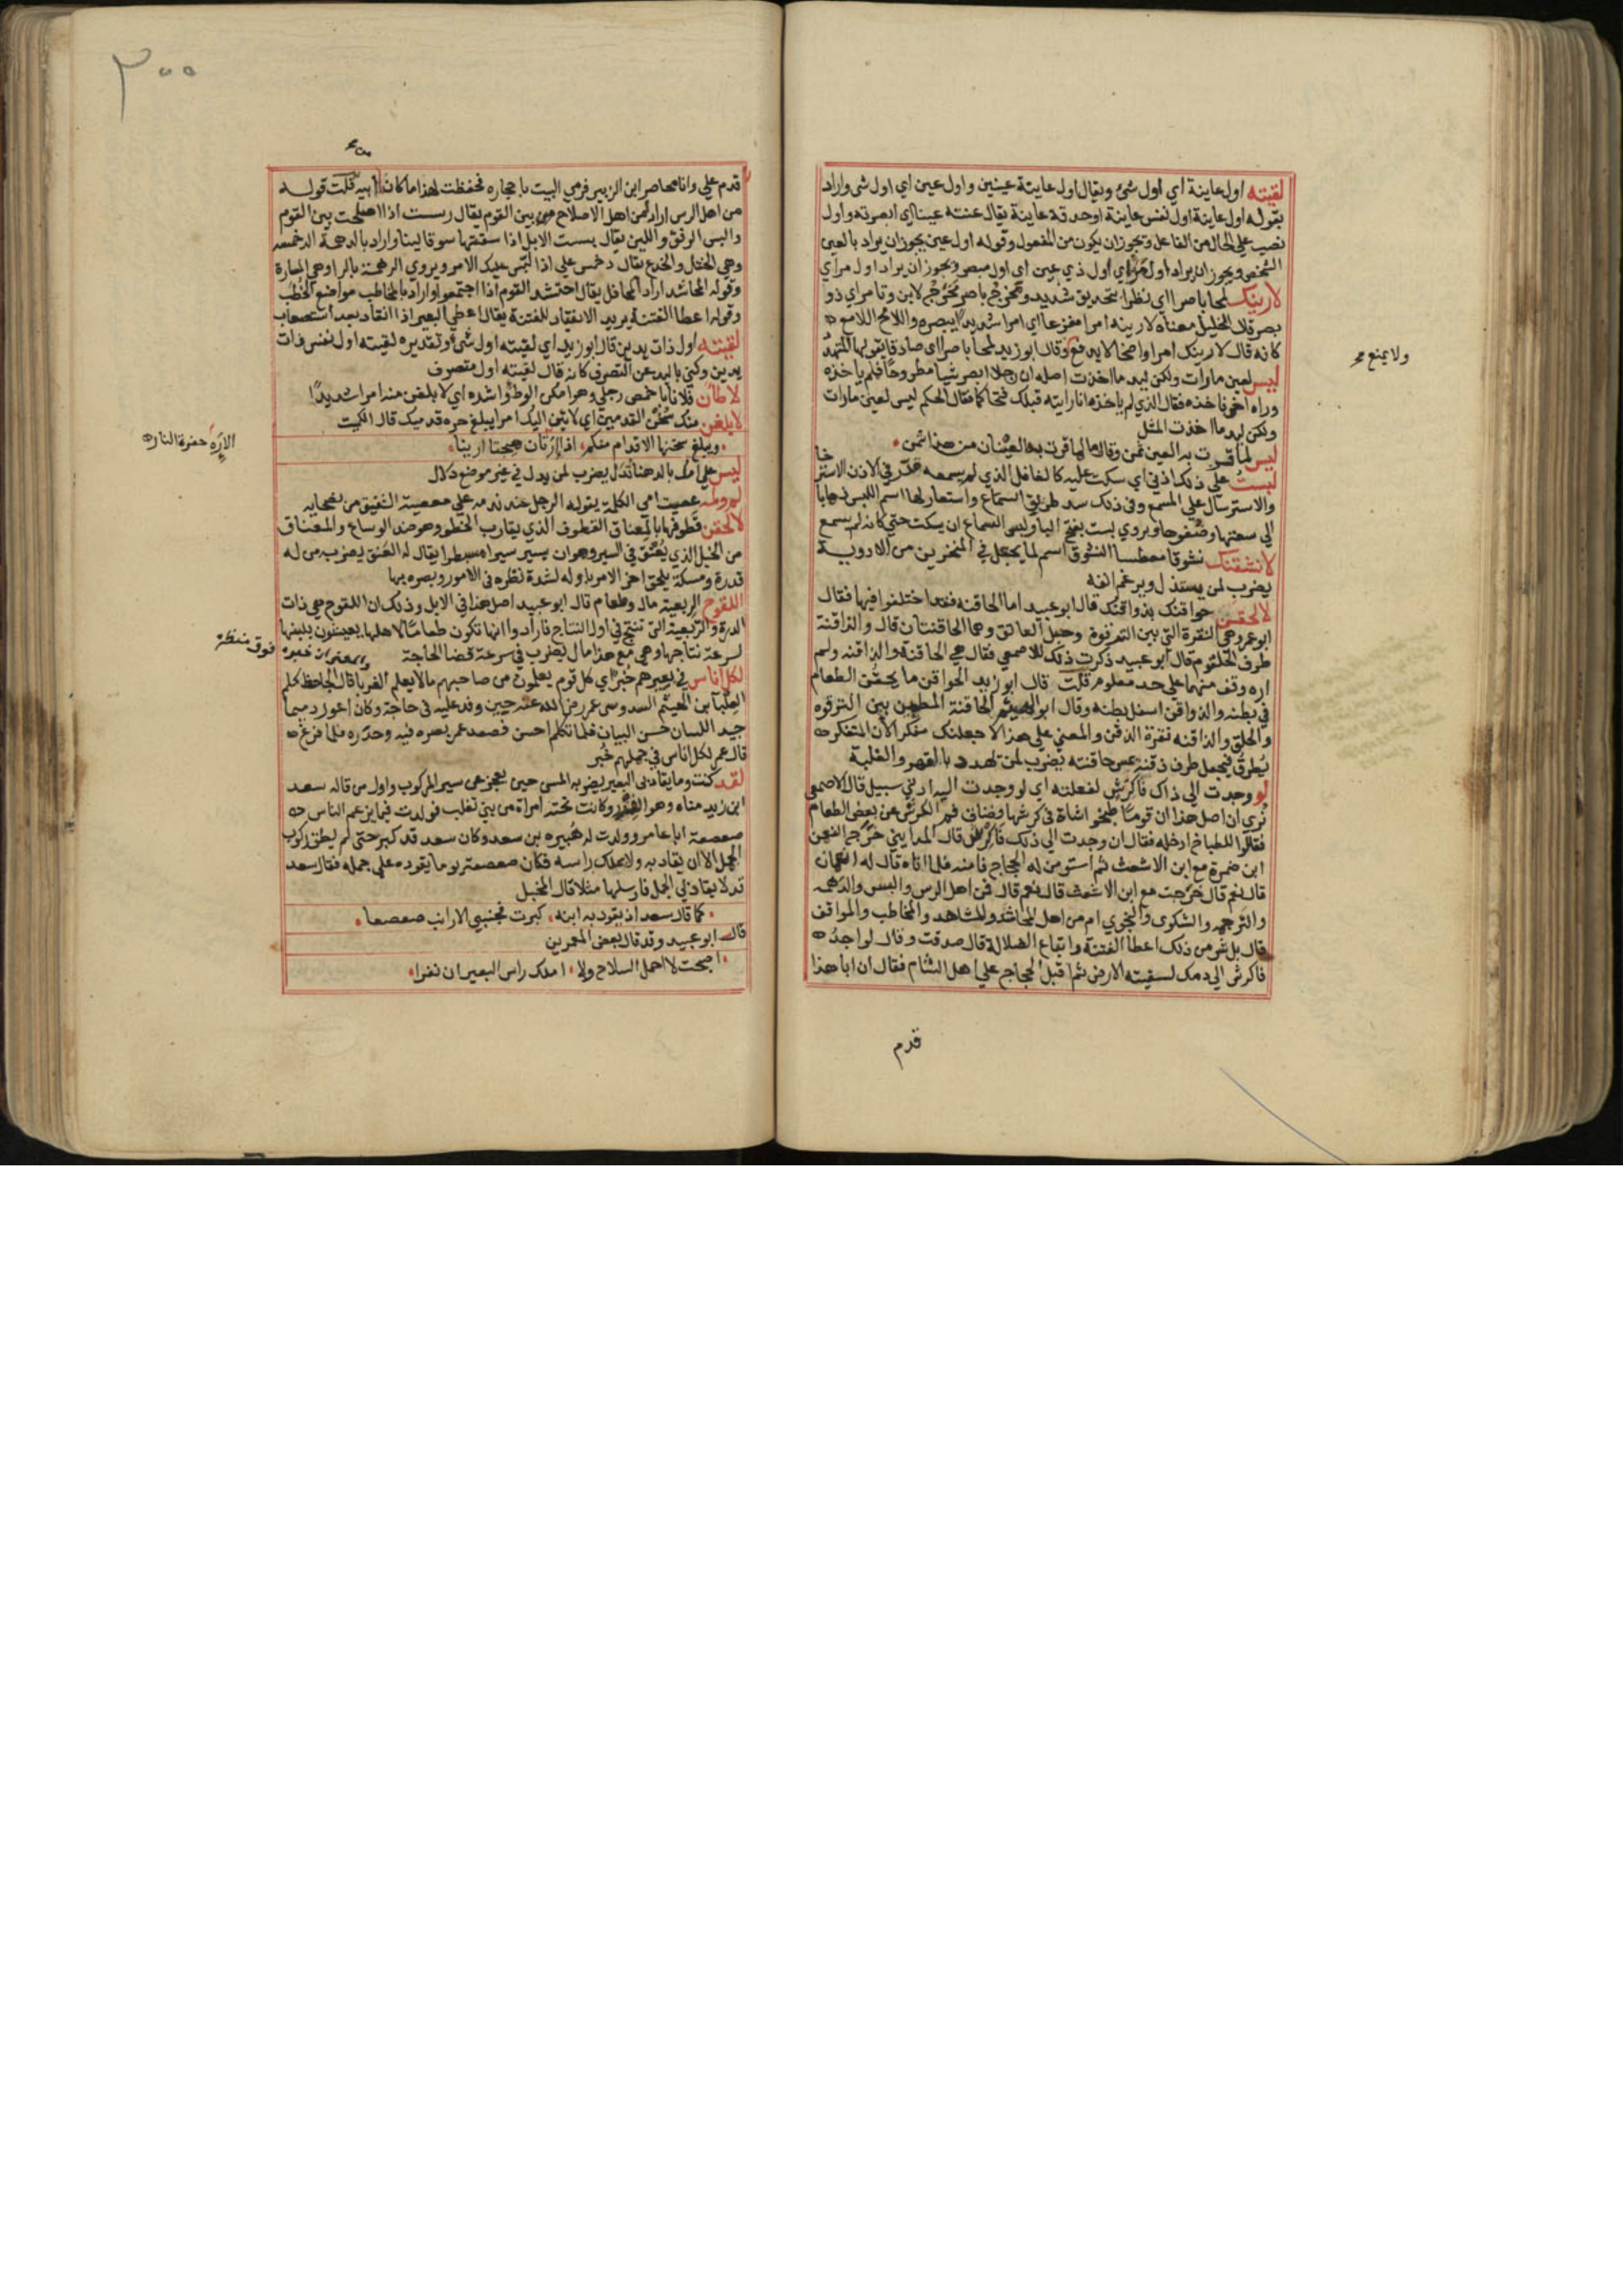 لقيته اول عاينة اي اول شئ ويقال اول عاينة عينين واول عين اي اول شئ واراد
بقوله اول عاينة اول نفس عاينة اوحدقة عاينة يقال عنته عينا اي ابصرته واول
نصب علي الحال من الفاعل ويجوز ان يكون من المفعول وقوله اول عين يجوز ان يراد بالعين
الشخص ويجوز ان يراد اول مرئي اول ذي عين اي اول مبصر ويجوز ان يراد اول مراي
لارينك لمحا باصرا اي نظرا بتحديق شديد ومخرج باصر مخرج لابن وتامر اي ذو
بصر قال الخليل معناه لارينه امرا مفزعا اي امرا شديدا يبصره واللامح اللامع
كانه قال لارينك امرا واضحا لا يدفع وقال ابو زيد لمحا باصرا اي صادقا يقولها المتهدد
ولا يمنع
ليس لعين مارات ولكن ليد ما اخذت اصله ان رجلا ابصر شيا مطروحا فلم ياخذه
وراه اخر فاخذه فقال الذي لم ياخذه انا رايته قبلك فتحاكما فقال الحكم ليس لعين مارات
ولكن ليد ما اخذت المثل
ليس لما قرت به العين ثمن وقال ما لما قرت به العينان من هذا ثمن
لبست علي ذلك اذني اي سكت عليه كالغافل الذي لم يسمعه في الاذن الاسترخا
والاسترسال علي المسمع وفي ذلك سد طريق السماع واستعار لها اسم اللبس ذهابا
الي سعتها وضفوها ويروي بست بفتح البا السماع ان يسكت حتي كانه لم يسمع
لانشقنك نشوقا معطسا النشوق اسم لما يجعل في المنخرين من الادوية
يضرب لمن يستذل ويرغم انفه
لالحقن حواقنك بذواقنك قال ابو عبيد اما الحاقنة فقد اختلفوا فيها فقال
ابو عمرو هي النقرة التي بين الترقوة وحبل العاتق وهما الحاقنتان قال والذاقنة
طرف الحلقوم قال ابو عبيد ذكرت ذلك للاصمعي فقال هي الحاقنة والذاقنه ولم
اره وقف منهما علي حد معلوم قلت قال ابو زيد الحواقن ما يحقن الطعام
في بطنه والذواقن اسفل بطنه وقال ابو الهيثم الحاقنة المطمئن بين الترقوه
والحلق والذاقنه نقرة الذقن والمعني علي هذا لاجعلنك متفكرا لان المتفكر
يطرق فيجعل طرف ذقنه يمس حاقنته يضرب لمن تهدد بالقهر والغلبة
لو وجدت الي ذاك فاكرش لفعلته اي لو وجدت اليه ادني سبيل قال الاصمعي
نري ان اصل هذا ان قوما طبخوا شاة في كرشها فضاق فم الكرش عن بعض الطعام
فقالوا للطباخ ادخله فقال ان وجدت الي ذلك فاكرش قال المدايني خرج النعمن
ابن ضمرة مع ابن الاشعث ثم استومن له الحجاج فامنه فلما اتاه قال له انعمان
قال نعم قال خرجت مع ابن الاشعث قال نعم قال فمن اهل الرس والبس والدهمه
والترجمه والشكوى والنجوي ام من اهل المحاشد والمشاهد والمخاطب والمواقف
قال بل شر من ذلك اعطا الفتنة واتباع الضلالة قال صدقت وقال لو اجد
فاكرش الي دمك لسقيته الارض ثم اقبل الحجاج علي اهل الشام فقال ان ابا هذا
قدم
٣٠٠
قدم علي وانا محاصر ابن الزبير فرمي البيت باحجاره فحفظت لهذا ما كان من ابيه قلت قوله
من اهل الرس اراد من اهل الاصلاح بين القوم يقال رسست اذا اصلحت بين القوم
والبس الرفق واللين يقال بسست الابل اذا سقتها سوقا لينا واراد بالدهمة الدخمسه
وهي الختل والخدع يقال دخمس علي اذا لبس عليك الامر ويروي الرهمة بالرا وهي المسارة
وقوله المحاشد اراد المحافل يقال احتشد القوم اذا اجتمعوا واراد بالمخاطب مواضع الخطب
وقوله اعطا الفتنة يريد الانقياد للفتنة يقال اعطي البعير اذا انقاد بعد استصعاب
لقيته اول ذات يدين قال ابو زيد اي لقيته اول شئ وتقديره لقيته اول نفس ذات
يدين وكني باليد عن التصرف كانه قال لقيته اول متصرف
لاطان فلانا باخمص رجلي وهو امكن الوطؤ واشده اي لابلغن منه امرا شديدا
لابلغن منك سخن القدمين اي لاتين اليك امرا يبلغ حره قدميك قال الكميت
ويبلغ سخنها الاقدام منكم اذا ارتان هيجتا ارينا
الارة حفرة النار
ليس علي امك بالدهنا تدل يضرب لمن يدل في غير موضع دلال
عصيت امي الكلمة يقوله الرجل عند ندمه علي معصية الشفيق من نصحايه
لالحقن قطوفها بالمعناق القطوف الذي يقارب الخطو وهو ضد الوساع والمعناق
من الخيل الذي يعنق في السير وهو ان يسير سيرا مسبطرا يقال له العنق يضرب من له
قدرة ومسكة يلحق اخر الامر باوله لشدة نظره في الامور وبصره بها
اللقوح الربعية مال وطعام قال ابو عبيد اصل هذا في الابل وذلك ان اللقوح هي ذات
الدرة والربعية التي تنتج في اول النتاج فارادوا انها تكون طعاما لاهلها يعيشون بلبنها
لسرعة نتاجها وهي مع هذا مال يضرب في سرعة قضا الحاجة
فوق منظره
لكل اناس في بعيرهم خبر اي كل قوم يعلمون من صاحبهم ما لا يعلم الغربا قال الجاحظ كلم
العلبا بن الهيثم السدوسي عمر رضي الله عنه حين وفد عليه في حاجة وكان اعور دميما
جيد اللسان حسن البيان فلما تكلم احسن فصعد عمر بصره فيه وحدره فلما فرغ
قال عمر لكل اناس في جملهم خبر
لقد كنت وما يقاد بي البعير يضربه المسن حين يعجز عن سير المركوب واول من قاله سعد
ابن زيد مناه وهو الفزر وكانت تحته امراة من بني تغلب فولدت فيما يزعم الناس
صعصعة ابا عامر وولدت له هبيره بن سعد وكان سعد قد كبر حتي لم يطق ركوب
الجمل الا ان يقاد به ولا يملك راسه فكان صعصعة يوما يقوده علي جمله فقال سعد
قد لا يقاد بي الجمل فارسلها مثلا قال المخبل
كما قال سعد اذ يقود به ابنه كبرت فجنبني الارانب صعصعا
قال ابو عبيد وقد قال بعض المعمرين
اصبحت لا احمل السلاح ولا املك راس البعير ان نفرا